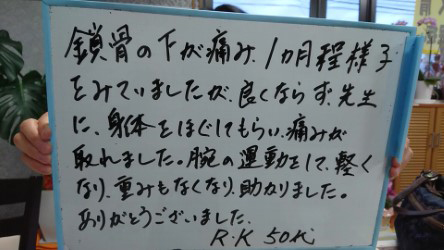 鎖骨の下が痛み、1ヵ月程様子
をみていましたが、良くならず、先生
に、身体をほぐしてもらい、痛みが
取れました。腕の運動をして、軽く
なり、重みもなくなり、助かりました。
ありがとうございました。
R.K 50代